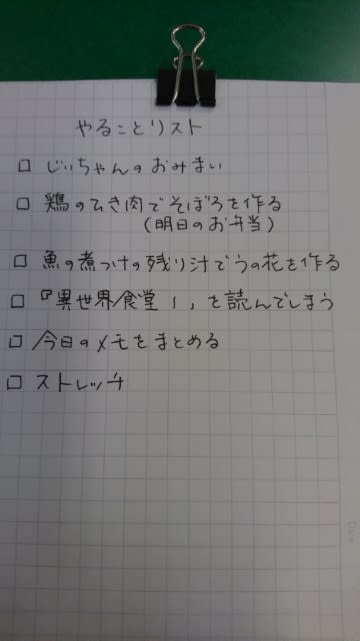 やることリスト
□ じいちゃんのおみまい
□ 鶏のひき肉でそぼろを作る
(明日のお弁当)
□ 魚の煮つけの残り汁でうの花を作る
□ 『異世界食堂1』を読んでしまう
□ 今日のメモをまとめる
□ ストレッチ